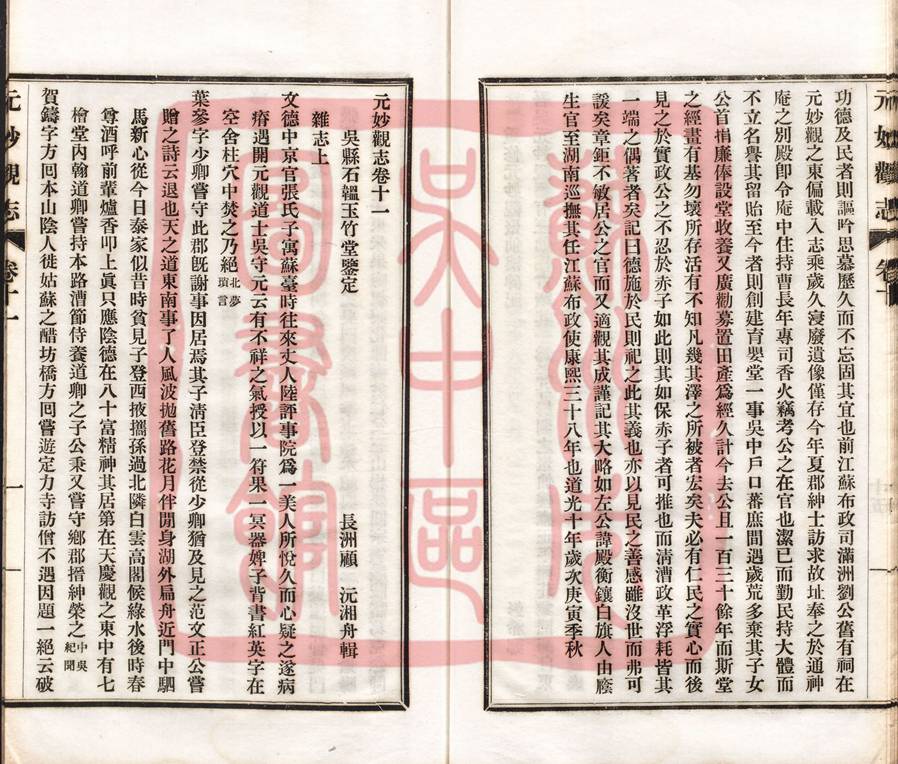 功德及民者則謳吟思慕歷久而不忘固其宜也前江蘇布政司滿洲劉公舊有祠在
元妙觀之東偏載入志乘歲久寖廢遺像僅存今年夏郡紳士訪求故址奉之於通神
庵之別殿卽令庵中住持曹長年專司香火竊考公之在官也潔已而勤民持大體而
不立名譽其留貽至今者則創建育嬰堂一事吳中戶口蕃庶間遇歲荒多棄其子女
公首捐廉俸設堂收養又廣勸募置田產爲經久計今去公且一百三十餘年而斯堂
之經畫有基勿壞所存活有不知凡幾其澤之所被者宏矣夫必有仁民之實心而後
見之於實政公之不忍於赤子如此則其如保赤子者可推也而淸漕政革浮耗皆其
一端之偶著者矣記曰德施於民則祀之此其義也亦以見民之善感雖沒世而弗可
諼矣章鉅不敏居公之官而又適觀其成謹記其大略如左公諱殿衡鑲白旗人由廕
生官至湖南巡撫其任江蘇布政使康熙三十八年也道光十年歲次庚寅季秋
元妙觀志
卷十
元妙觀志卷十一
吳縣石韞玉竹堂鑒定
長洲顧　沅湘舟輯
雜志上
文德中京官張氏子寓蘇臺時往來丈人陸評事院爲一美人所悅久而心疑之遂病
瘠遇開元觀道士吳守元云有不祥之氣授以一符果一冥器婢子背書紅英字在
空舍柱穴中焚之乃絕北夢瑣言
葉參字少卿嘗守此郡旣謝事因居焉其子淸臣登禁從少卿猶及見之范文正公嘗
贈之詩云退也天之道東南事了人風波拋舊路花月伴閒身湖外扁舟近門中駟
馬新心從今日泰家似昔時貧見子登西掖攜孫過北隣白雲高閣候綠水後時春
尊酒呼前輩爐香叩上眞只應陰德在八十富精神其居第在天慶觀之東中有七
檜堂內翰道卿嘗持本路漕節侍養道卿之子公秉又嘗守鄉郡搢紳榮之中吳紀聞
賀鑄字方回本山陰人徙姑蘇之醋坊橋方回嘗遊定力寺訪僧不遇因題一絕云破
元妙觀志
卷十一
一
吳中區
圖書館